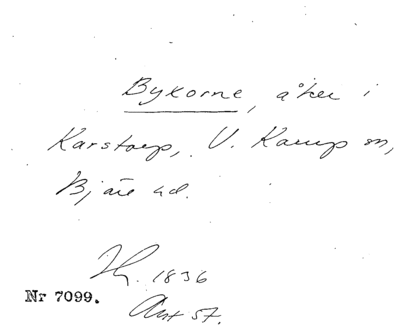 Bykorne, åker i
Karstorp, V. Karup sn,
Bjäre hd.
1836
Nr 7099.
Ant 57.